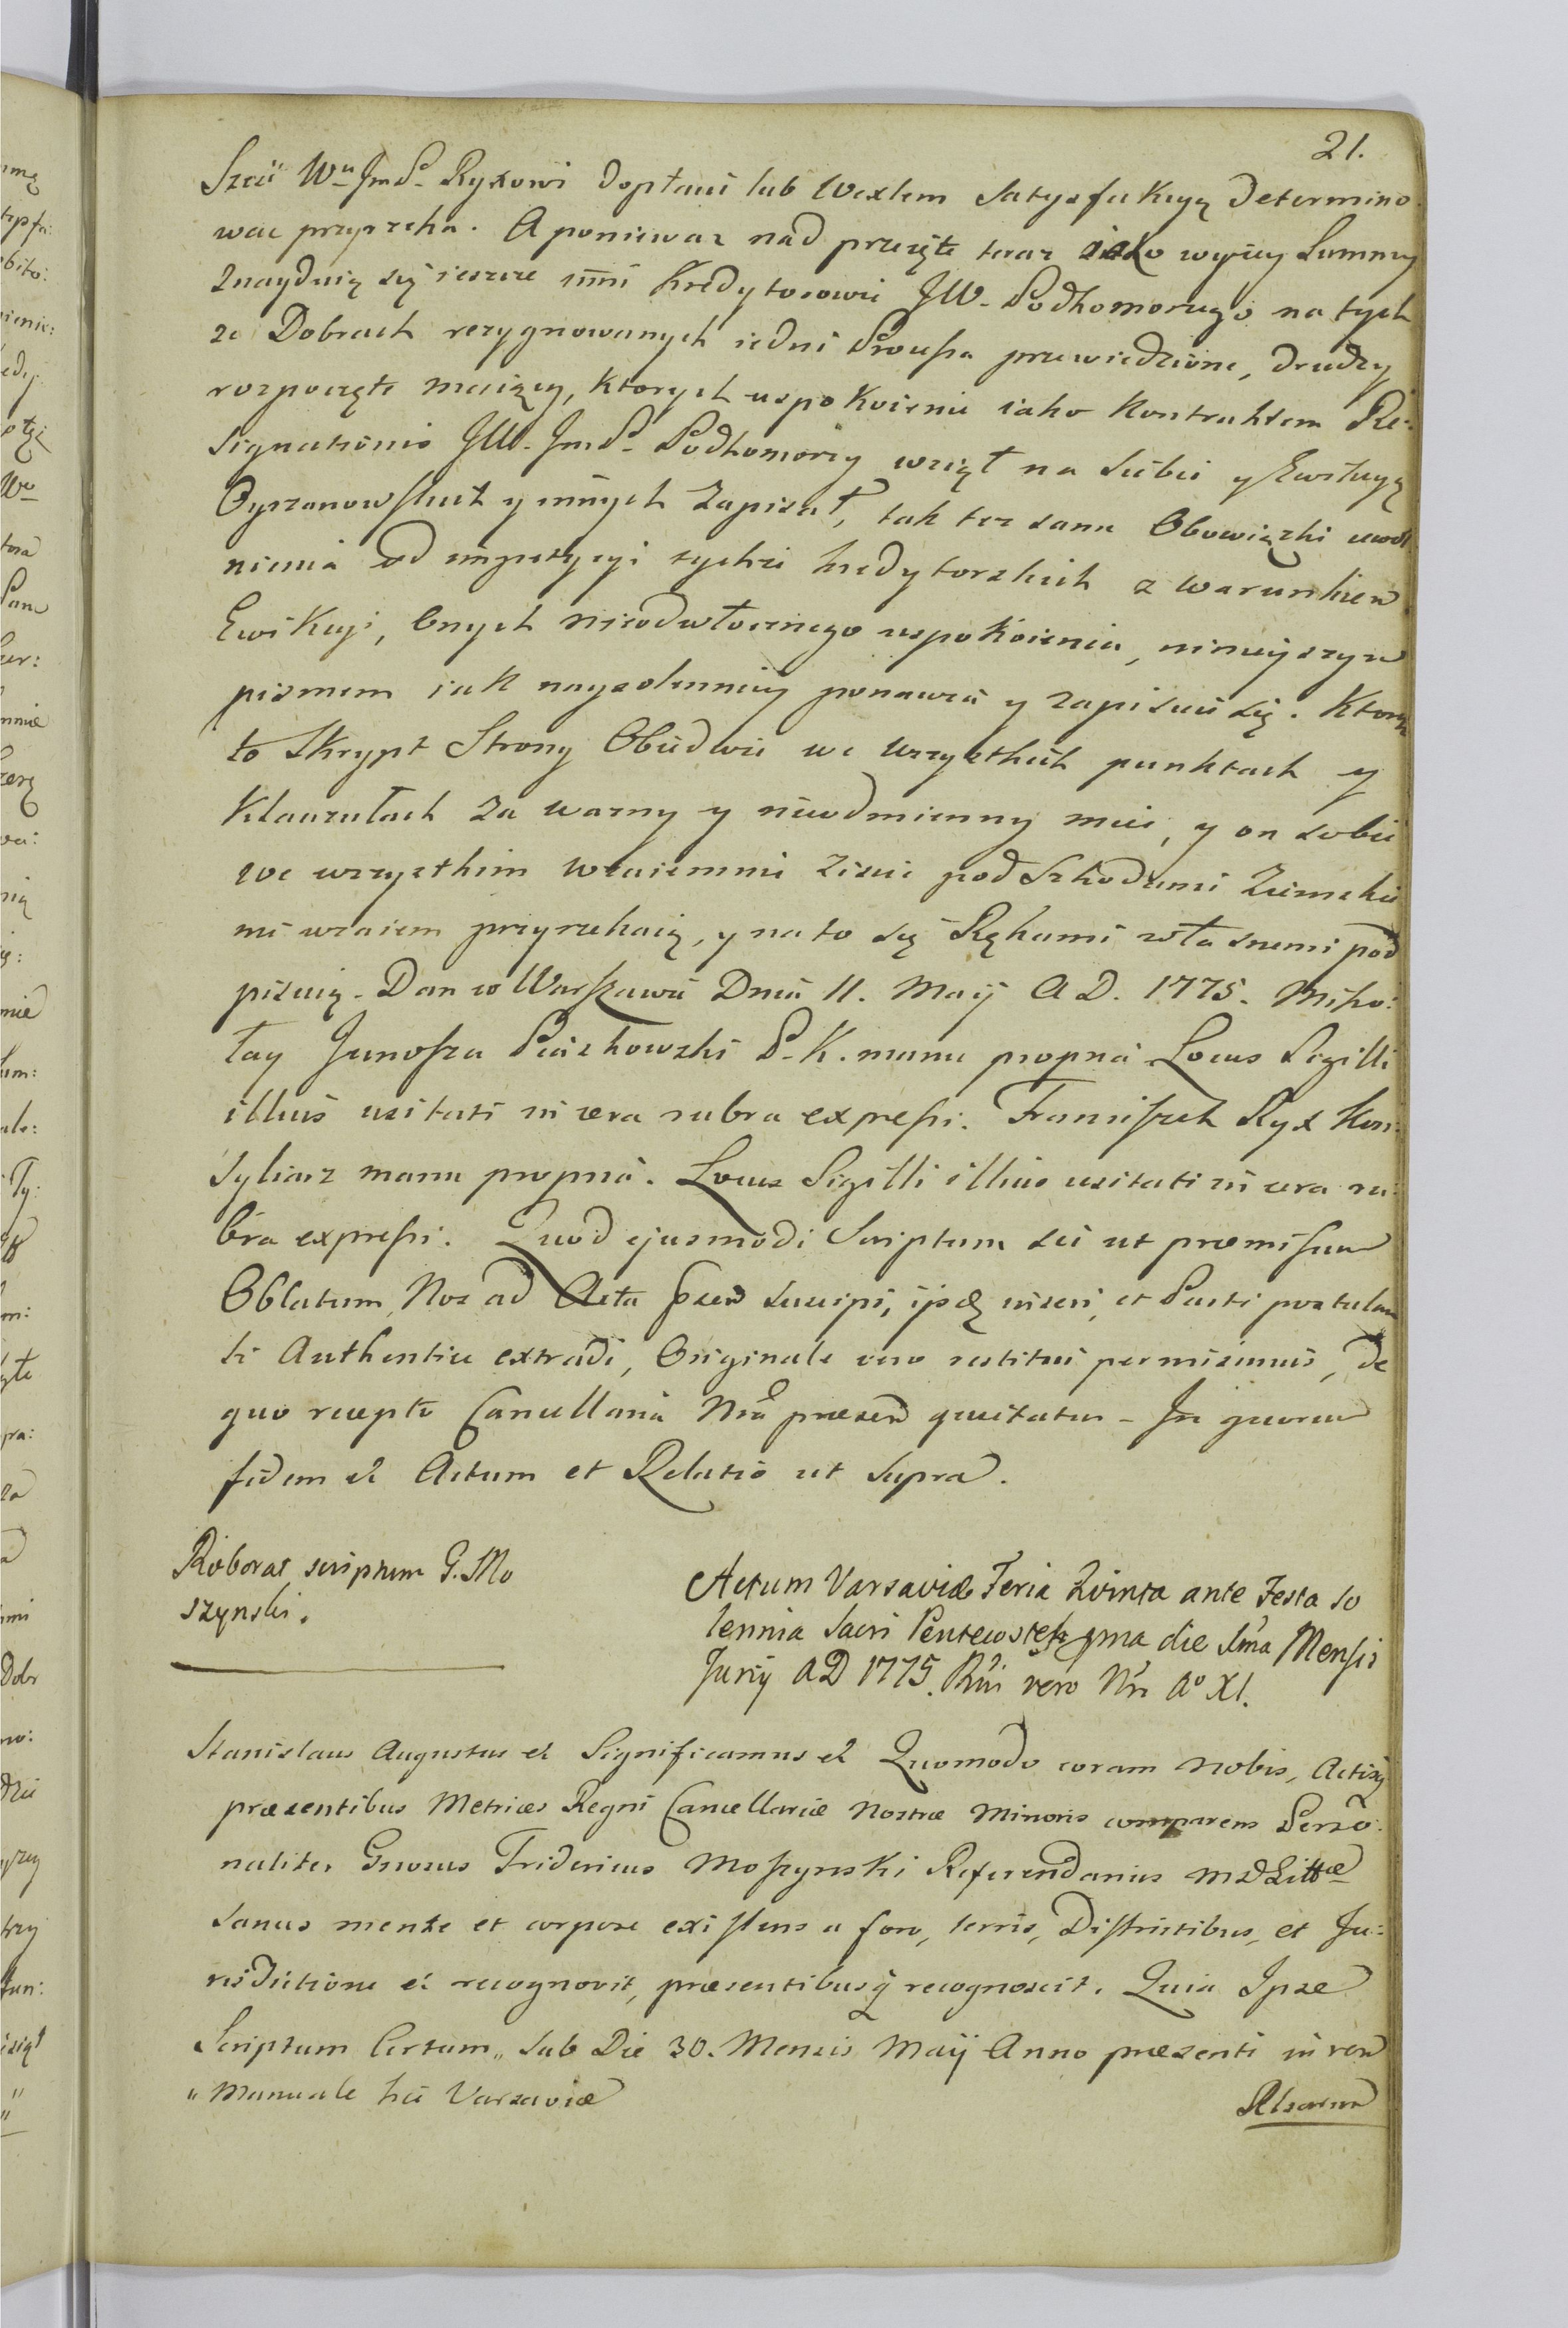 21.
Szcii Wu JmP. Ryxowi dopłaci lub Wexlem Satysfakcyą determino
wac przyrzeka. A poniewaz nad przeięte teraz iako wyżey Summy
Znayduią się ieszcze inni Kredytorowie JW. Podkomorzego na tych
ze Dobrach rezygnowanych iedni Processa przewiedzione, drudzy
rozpoczęte maiący, Ktorych uspokoienie iako Kontraktem Re:
signationis JW. JmP. Podkomorzy wziął na siebie y Ewikcyą
Oyrzanowskich y innych Zapisał, tak tez same Obowiązki uwol
nienia od impetycyi tychze kredytorskich z warunkiem
Ewikcyi, Onych nieodwłocznego uspokoienia, ninieyszym
pismem iak naysolenniey ponawia y zapisuie się. Ktory
to Skrypt Strony Obiedwie we wszystkich punktach y
Klauzułach za wazny y nieodmienny miec, y on sobie
we wszystkim wzaiemnie ziscic pod Szkodami Ziemskie
mi wzaiem przyrzekaią, y na to się Rękami własnemi pod
pisuią. Dan w Warszawie Dnia 11. Maij A D. 1775. Miko:
łay Junosza Piaskowski P. K. manu propria Locus Sigilli
illius usitati in cera rubra expressi. Franciszek Ryx Kon:
syliarz manu propria. Locus Sigilli illius usitati in cera ru:
bra expressi. Quod ejusmodi Scriptum sic ut præmissum
Oblatum, Nos ad Acta præsen suscipi, ipsq inseri, et Parti postulan
ti Authentice extradi, Originale vero restitui permisimus, de
quo recepto Cancellaria Nra præsen quietatur - In quorum
fidem et Actum et Relatio ut Supra.
Roborat scriptum G. Mo
szynski.
Actum Varsaviæ Feria Quinta ante Festa so
lennia Sacri Pentecostes pma die Ima Mensis
Junij A D 1775. Rni vero Nri Ao XI.
Stanislaus Augustus et Significamus et Quomodo coram Nobis, Actisq
præsentibus Metrices Regni Cancellariæ Nostræ Minoris comparens Perso:
naliter Gnosus Fridericus Moszynski Referendarius M D Littæ
sanus mente et corpore existens a foro, terris, Districtibus, et Ju:
risdictione et recognovit, præsentibusq recognoscit. Quia Ipse
Scriptum Certum„ Sub Die 30. Mensis Maij Anno præsenti in rem
„ Manuale hic Varsaviæ